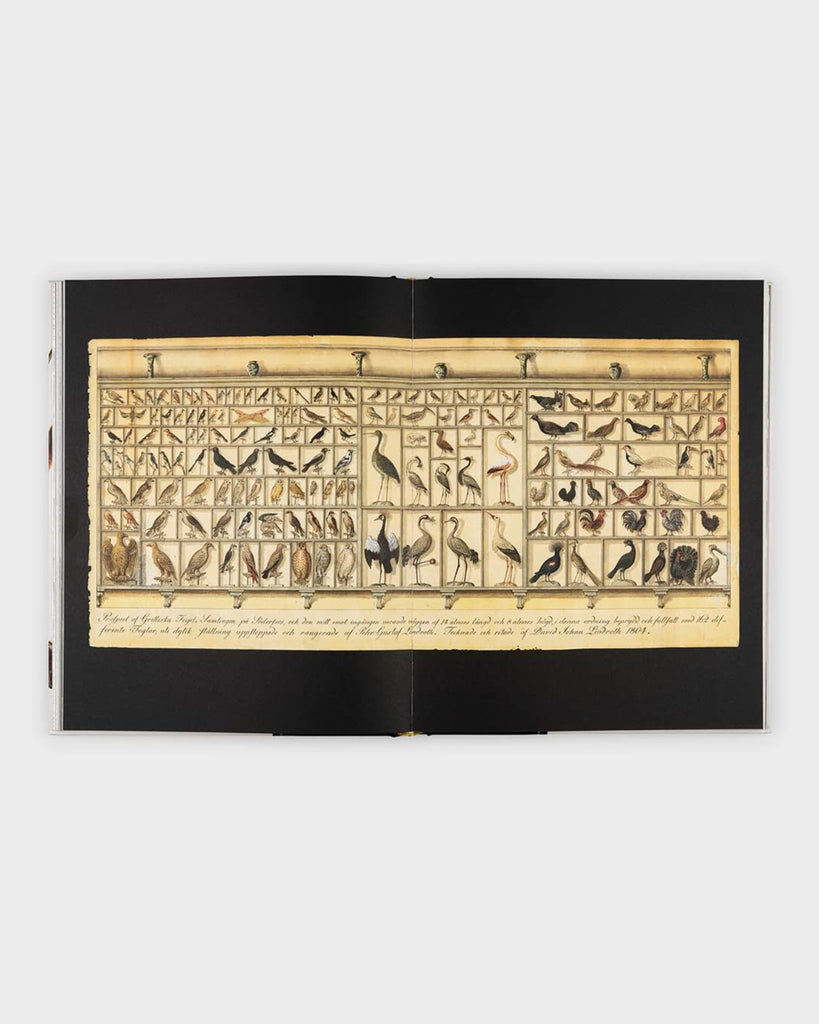 Prospect af Grillska Fogel-Samlingen på Söderfors, och den mitt emot ingången varande väggen af 14 alnars längd och 8 alnars högd, i denna ordning beprydd och fullsatt med 162 dif-
ferente Foglar, uti dylik ställning uppstoppade och rangerade af Pehr Gustaf Lindroth. Tecknade och ritade af David Johan Lindroth 1804.